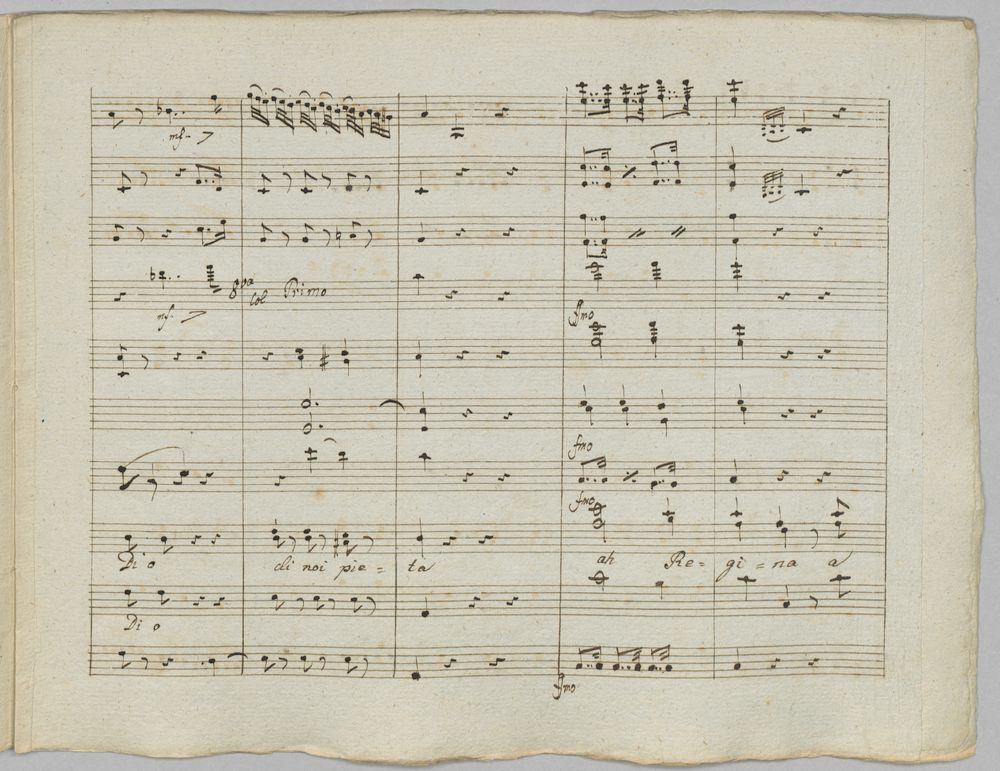 mf.
8va
Col Primo
mf.
fmo
fmo
fmo
Dio di noi pie = ta ah Re = gi = na a
Dio
fmo